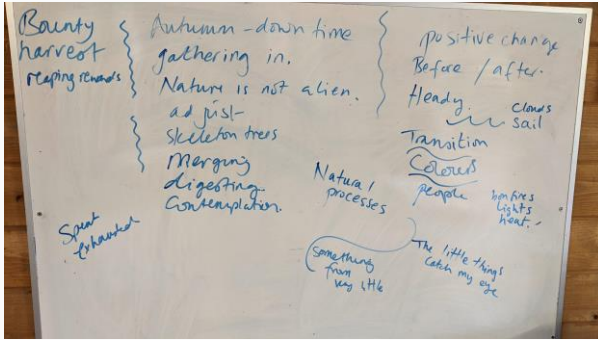 Bounty
harvest
reaping rewards
Spent
exhausted
Autumn - down time
gathering in.
Nature is not alien.
adjust
skeleton trees
Merging
digesting.
Contemplation.
Natural
processes
something
from
very little
positive change
Before / after.
Heady.
clouds
sail
Transition
Colours
people
bonfires
lights
heat.
The little things
catch my eye